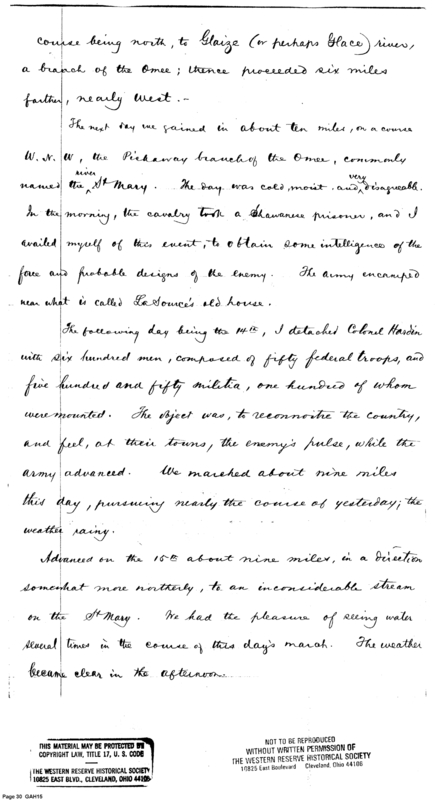 course being north, to Glaize (or perhaps Glace) river,
a branch of the Omee; thence proceeded six miles
farther, nearly West. -
The next day we gained in about ten miles, on a course
W. N. W, the Pickaway branch of the Omee, commonly
river very
named the ^ St Mary. The day was cold, moist and ^ disagreeable.
In the morning, the cavalry took a Shawanese prisoner, and I
availed myself of this event, to obtain some intelligence of the
force and probable designs of the enemy. The army encamped
near what is called La Source's old house.
The following day being the 14th, I detached Colonel Hardin
with six hundred men, composed of fifty federal troops, and
five hundred and fifty militia, one hundred of whom
were mounted. The object was, to reconnoitre the country,
and feel, at their towns, the enemy's pulse, while the
army advanced. We marched about nine miles
this day, pursuing nearly the course of yesterday; the
weather rainy.
Advanced on the 15th about nine miles, in a direction
somewhat more northerly, to an inconsiderable stream
on the St Mary. We had the pleasure of seeing water
several times in the course of this day's march. The weather
became clear in the afternoon.
THIS MATERIAL MAY BE PROTECTED BY
COPYRIGHT LAW, TITLE 17, U. S. CODE
THE WESTERN RESERVE HISTORICAL SOCIETY
10825 EAST BLVD., CLEVELAND, OHIO 44106
NOT TO BE REPRODUCED
WITHOUT WRITTEN PERMISSION OF
THE WESTERN RESERVE HISTORICAL SOCIETY
10825 East Boulevard Cleveland, Ohio 44106
Page 30 GAH15